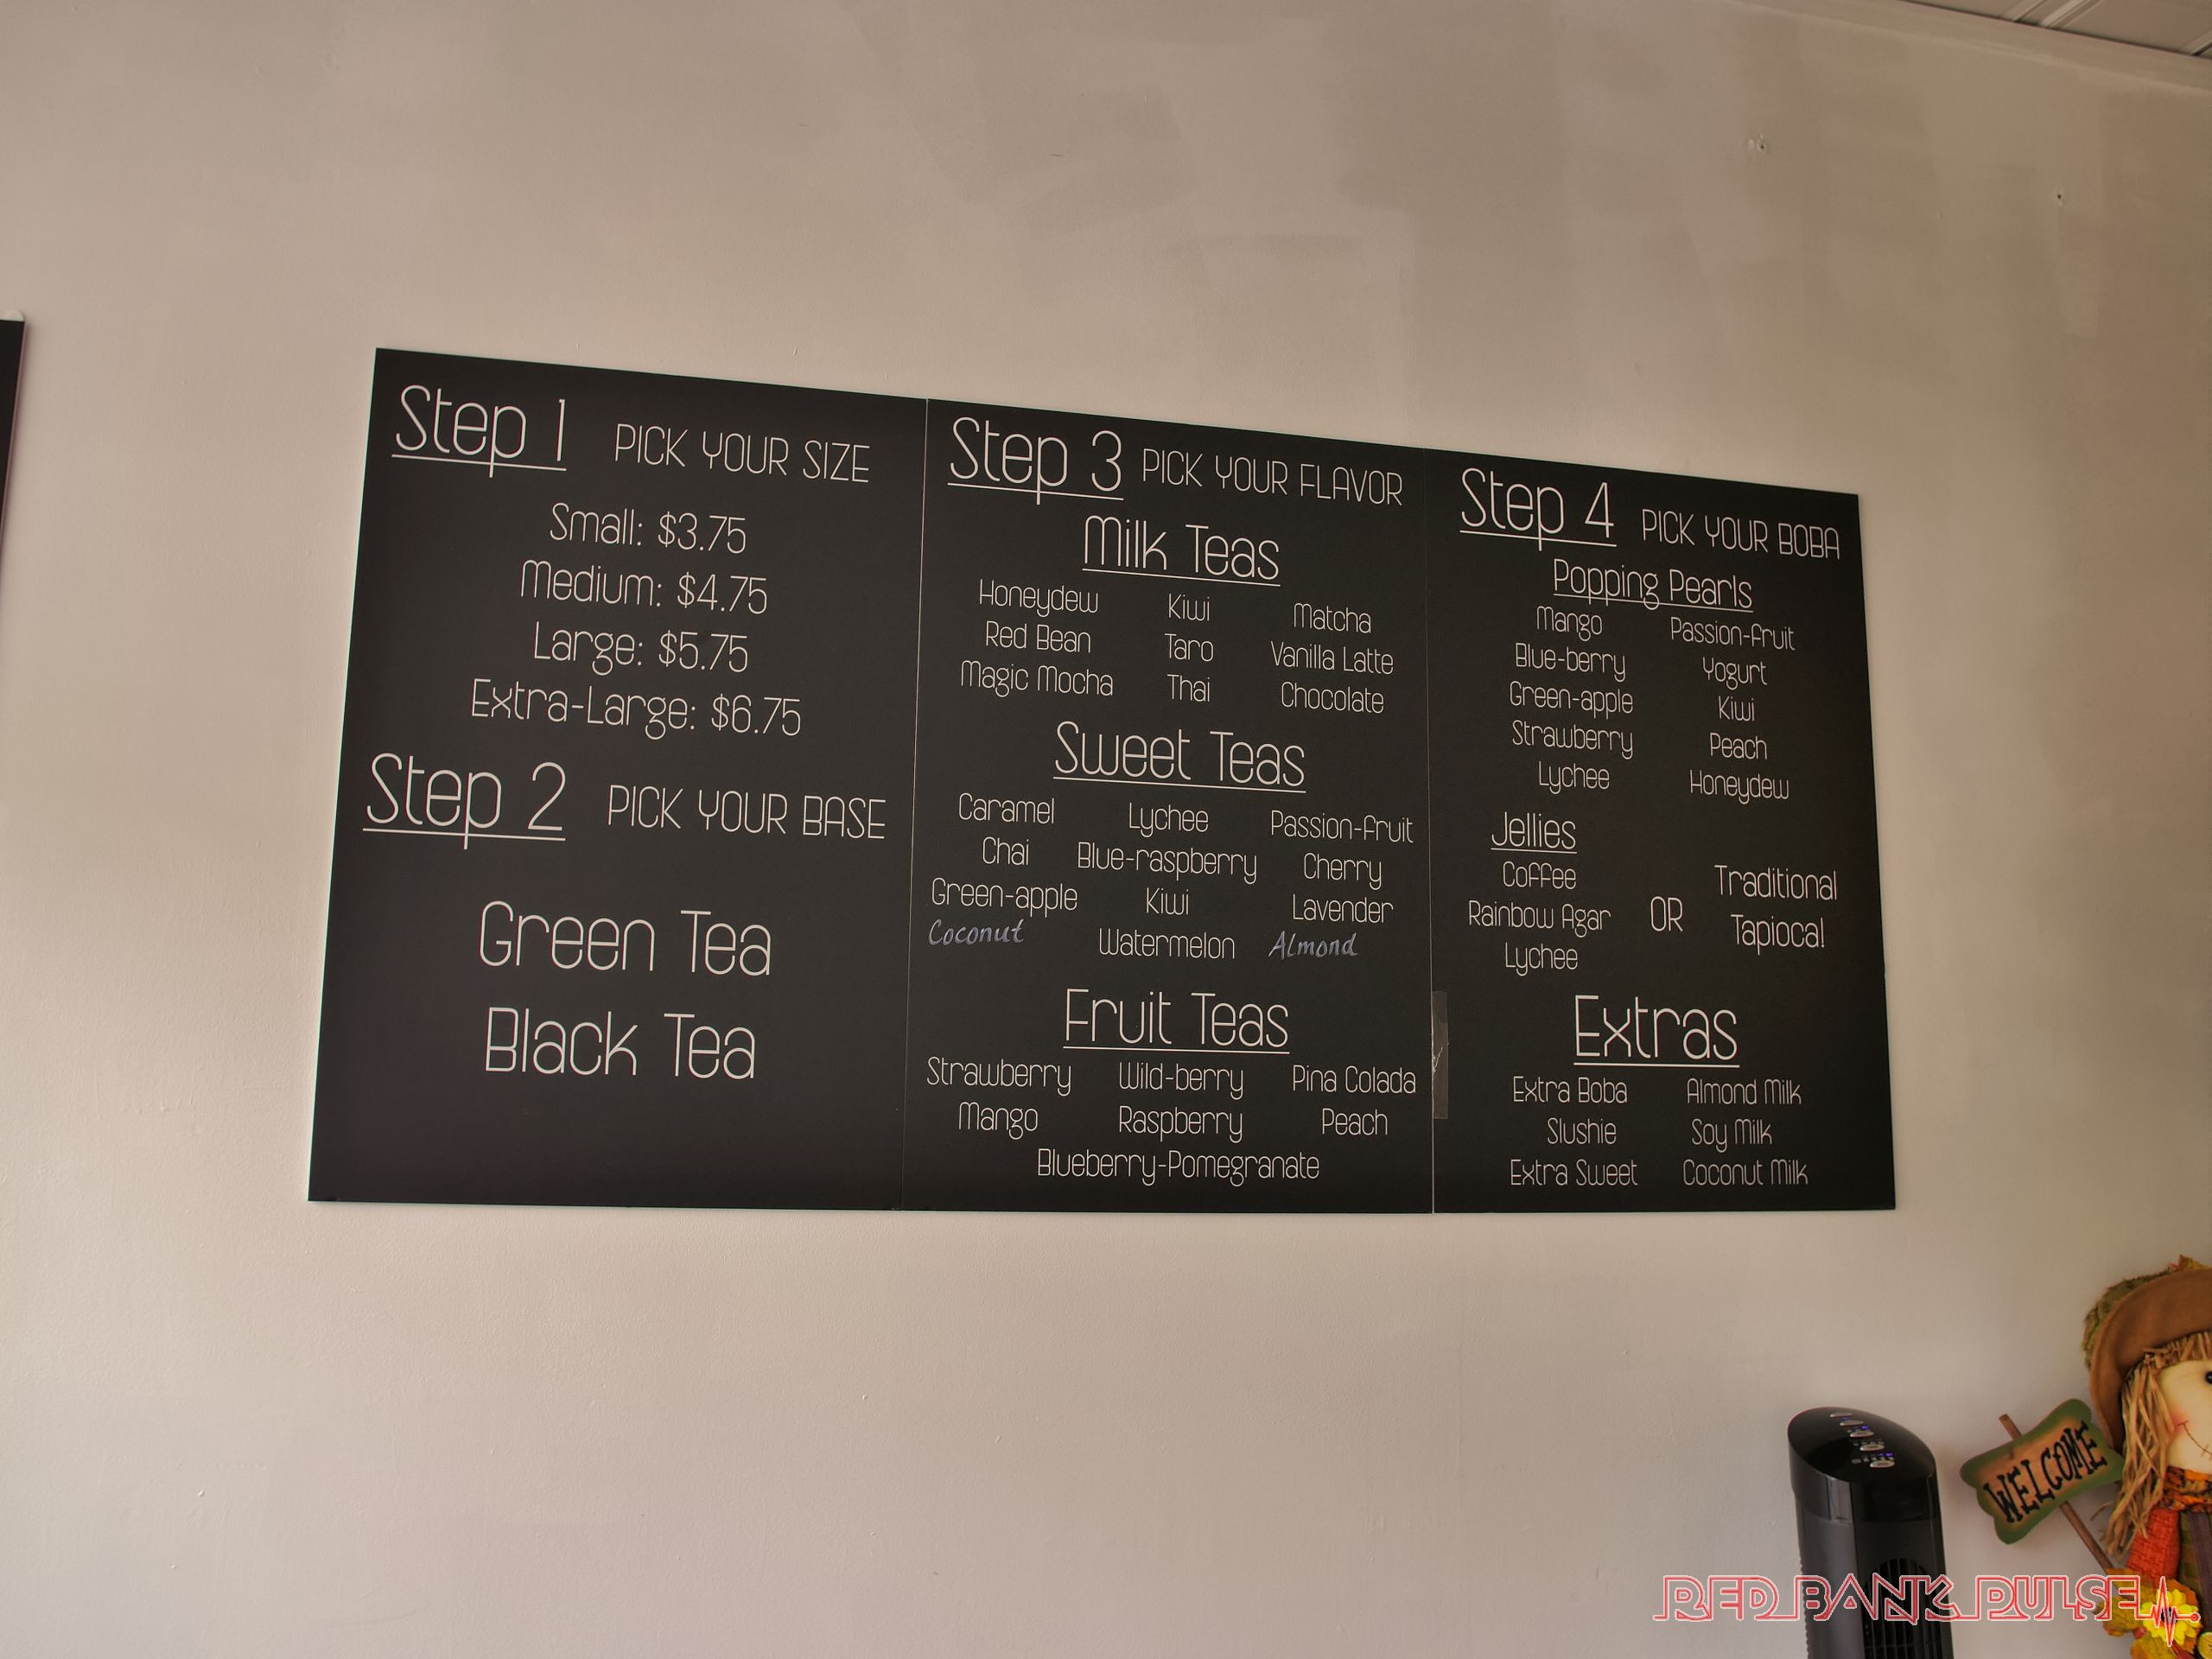 Step 1 PICK YOUR SIZE
Small: $3.75
Medium: $4.75
Large: $5.75
Extra-Large: $6.75
Step 2 PICK YOUR BASE
Green Tea
Black Tea
Step 3 PICK YOUR FLAVOR
Milk Teas
Honeydew Kiwi Matcha
Red Bean Taro Vanilla Latte
Magic Mocha Thai Chocolate
Sweet Teas
Caramel Lychee Passion-fruit
Chai Blue-raspberry Cherry
Green-apple Kiwi Lavender
Coconut Watermelon Almond
Fruit Teas
Strawberry Wild-berry Pina Colada
Mango Raspberry Peach
Blueberry-Pomegranate
Step 4 PICK YOUR BOBA
Popping Pearls
Mango Passion-fruit
Blue-berry Yogurt
Green-apple Kiwi
Strawberry Peach
Lychee Honeydew
Jellies
Coffee
Rainbow Agar
Lychee
OR
Traditional
Tapioca!
Extras
Extra Boba Almond Milk
Slushie Soy Milk
Extra Sweet Coconut Milk
WELCOME
RED BANK PULSE